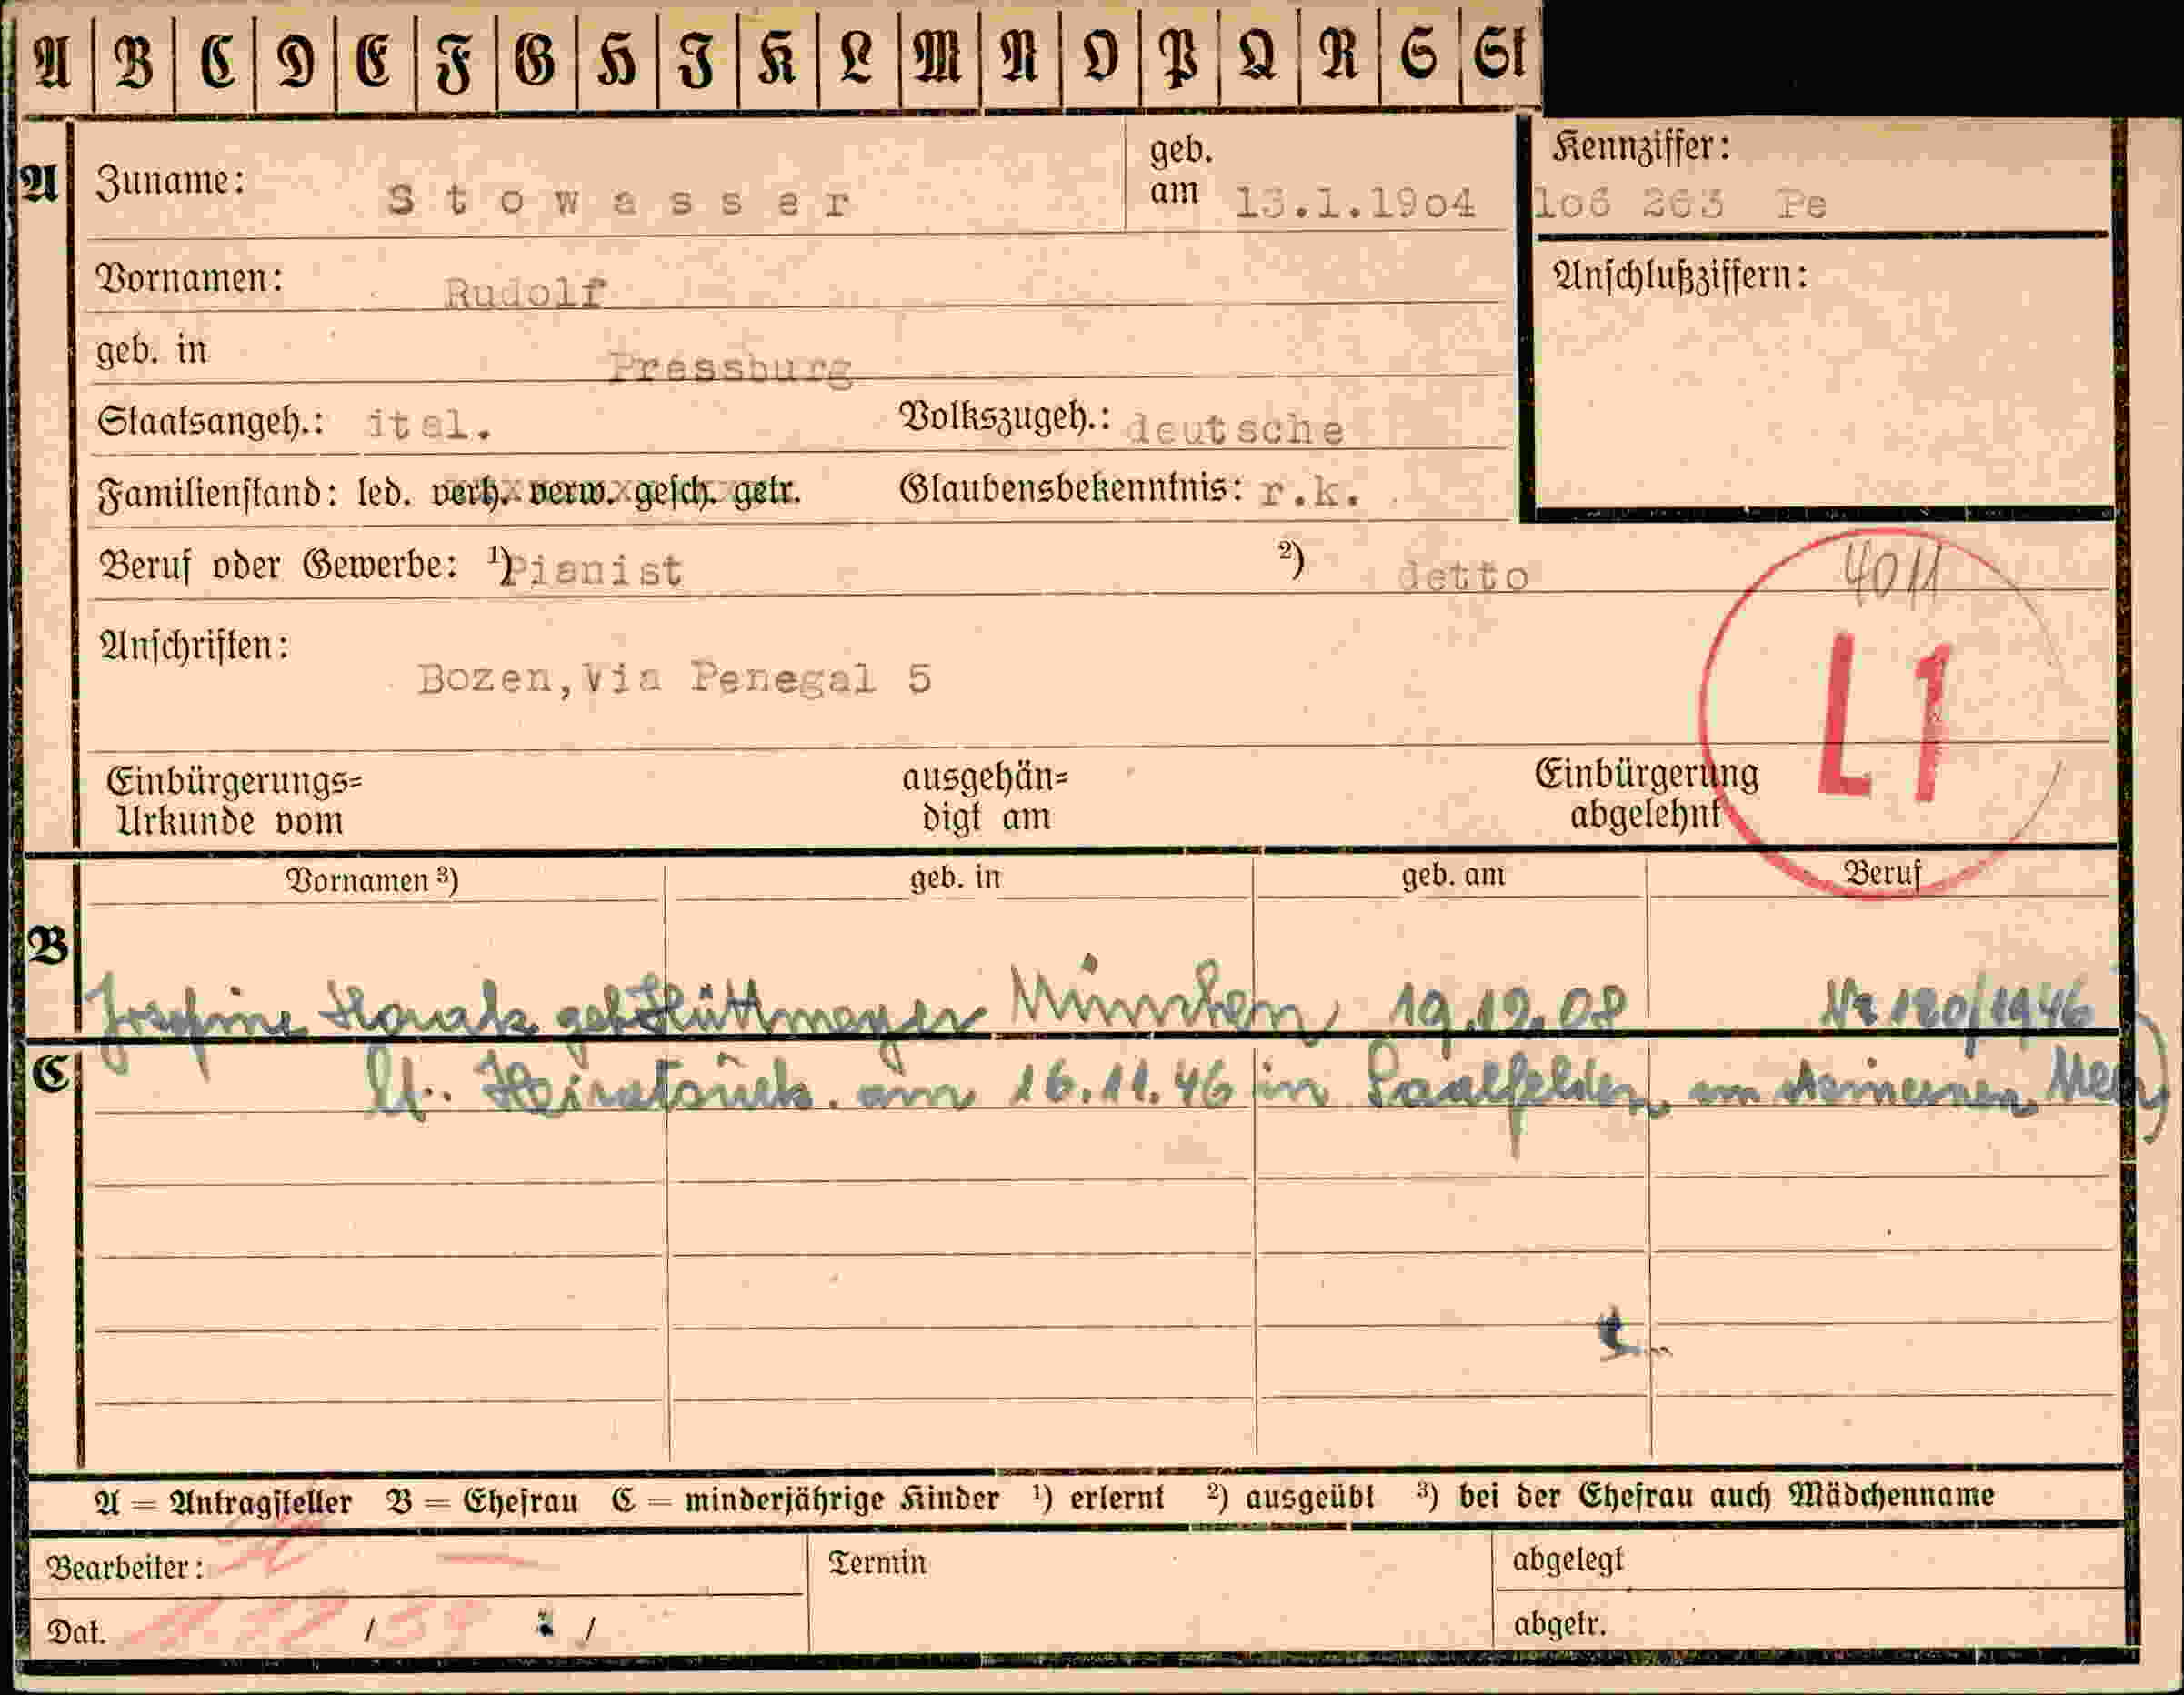 A B C D E F G H I K L M N O P Q R S St
A Zuname: Stowasser geb. am 13.1.1904 Kennziffer: 1o6 263 Pe
Vornamen: Rudolf Anschlußziffern:
geb. in Pressburg
Staatsangeh.: ital. Volkszugeh.: deutsche
Familienstand: led. verh. verw. gesch. getr. Glaubensbekenntnis: r.k.
Beruf oder Gewerbe: ¹) Pianist ²) detto 4011
Anschriften: L1
Bozen, Via Penegal 5
Einbürgerungs= ausgehän= Einbürgerung
Urkunde vom digt am abgelehnt
Vornamen ³) geb. in geb. am Beruf
B
Josefine geb. Hüttmeyer München 19.12.08 Nr 120/1946
C lt. am 16.11.46 in Saalfelden am steinernen Meer)
A = Antragsteller B = Ehefrau C = minderjährige Kinder ¹) erlernt ²) ausgeübt ³) bei der Ehefrau auch Mädchenname
Bearbeiter: Termin abgelegt
Dat. / / abgetr.